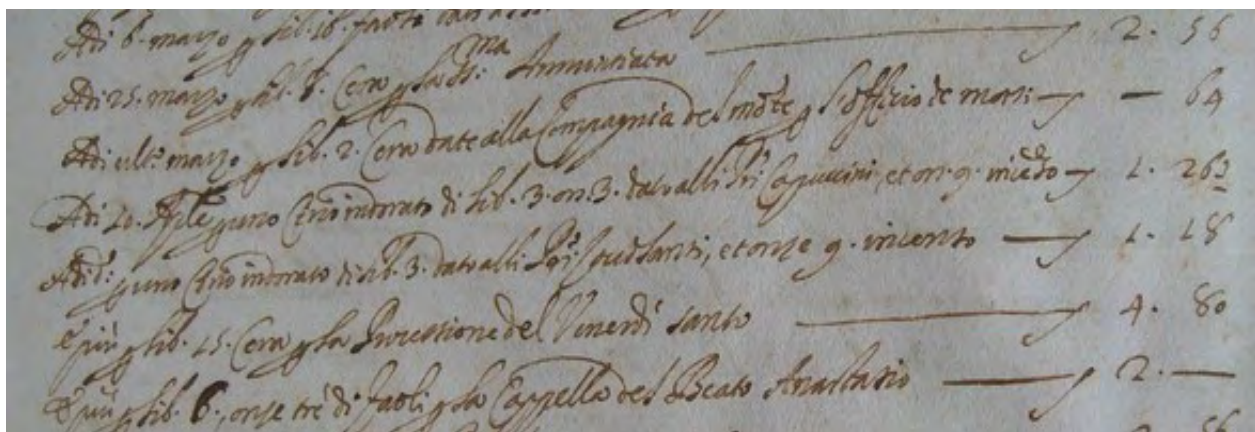 Adi 6. marzo p lib. 18. facole
Adi 25. marzo p lib. 8. Cera p la SS.ma Annunciata 2. 56
Adi ult.o marzo p lib. 2. Cera date alla Compagnia del mōte p l'offitio de morti — 64
Adi 10. Aple p uno Cerio indorato di lib. 3. on. 3. dato alli Pri Capuccini, et on. 9. incēso 1. 26
Adi d.o p uno Cerio indorato di lib. 3. dato alli Pri Zuccolanti, et onze 9. incenso 1. 18
E più p lib. 15. Cera p la Processione del Venerdì santo 4. 80
E più p lib. 6. onze trè di facoli p la Cappella del Beato Anastasio 2. —
56